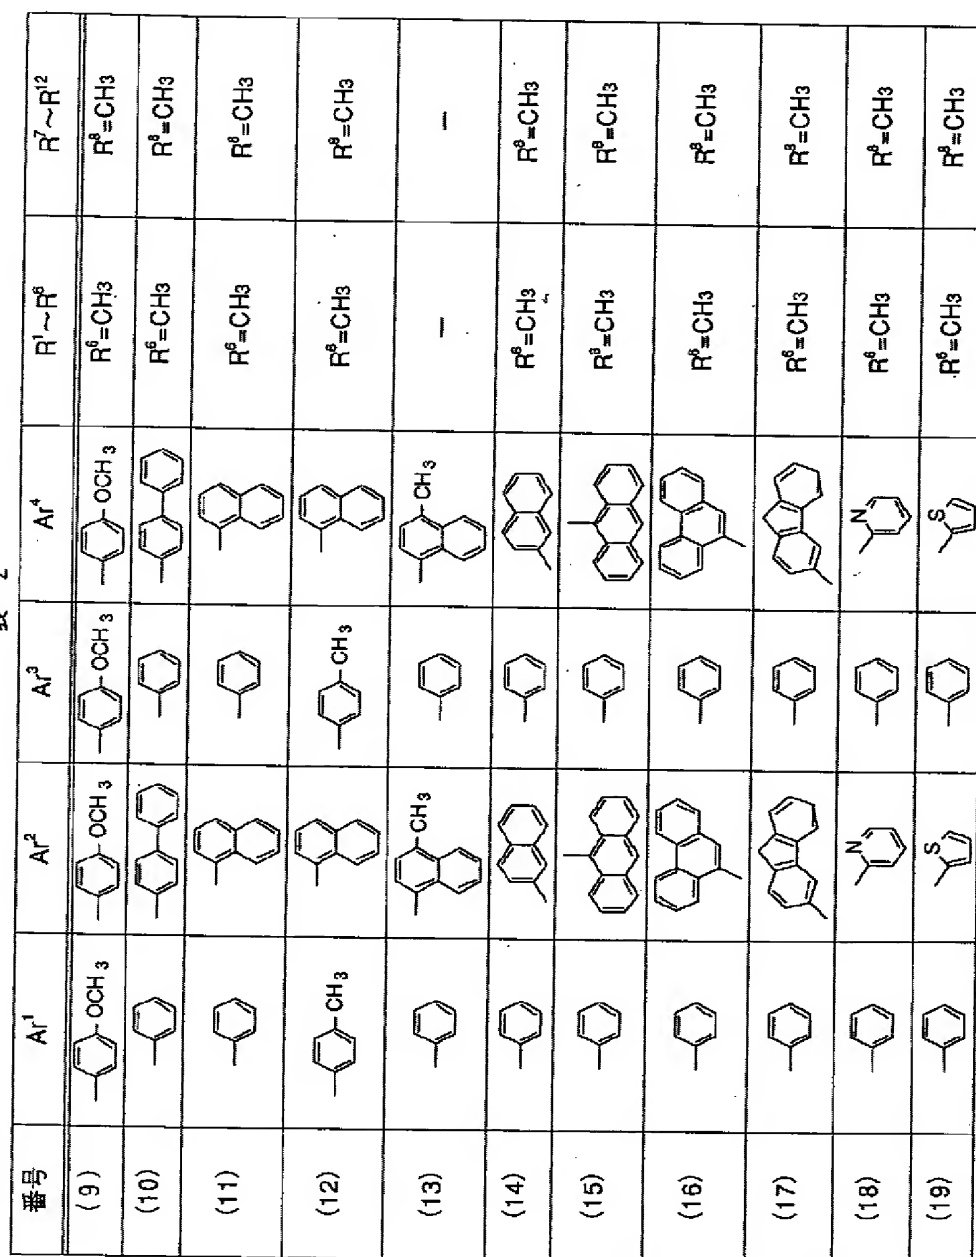 表 2
番号 Ar¹ Ar² Ar³ Ar⁴ R¹～R⁶ R⁷～R¹²
(9) OCH₃ OCH₃ OCH₃ OCH₃ R⁶=CH3 R⁸=CH3
(10) R⁶=CH3 R⁸=CH3
(11) R⁶=CH3 R⁸=CH3
(12) CH₃ CH₃ R⁶=CH3 R⁸=CH3
(13) CH₃ CH₃ — —
(14) R⁶=CH3 R⁸=CH3
(15) R⁶=CH3 R⁸=CH3
(16) R⁶=CH3 R⁸=CH3
(17) R⁶=CH3 R⁸=CH3
(18) N N R⁶=CH3 R⁸=CH3
(19) S S R⁶=CH3 R⁸=CH3